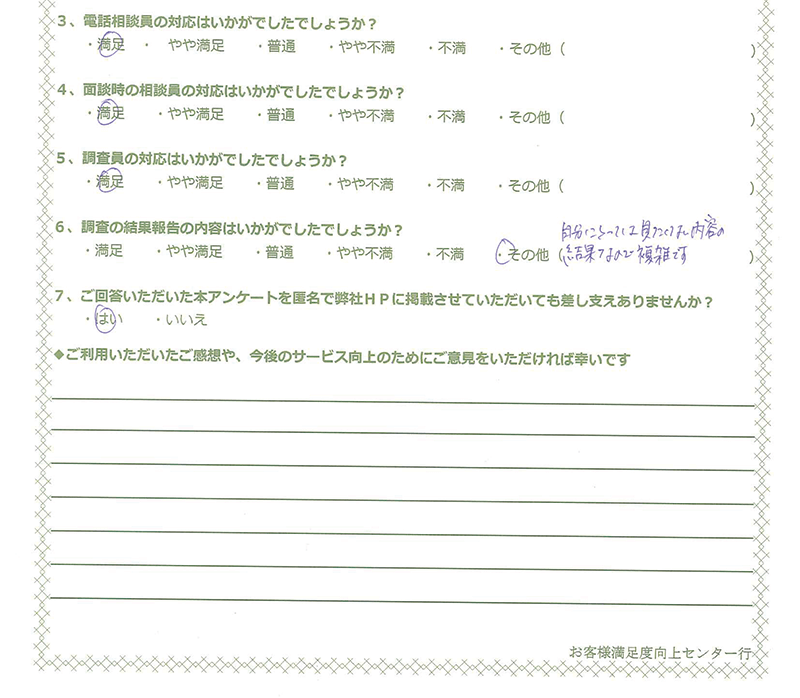 3、電話相談員の対応はいかがでしたでしょうか？
・満足 ・ やや満足 ・普通 ・やや不満 ・不満 ・その他（ ）
4、面談時の相談員の対応はいかがでしたでしょうか？
・満足 ・やや満足 ・普通 ・やや不満 ・不満 ・その他（ ）
5、調査員の対応はいかがでしたでしょうか？
・満足 ・やや満足 ・普通 ・やや不満 ・不満 ・その他（ ）
6、調査の結果報告の内容はいかがでしたでしょうか？
自分にとっては見たくない内容の
・満足 ・やや満足 ・普通 ・やや不満 ・不満 ・その他（結果なので複雑です ）
7、ご回答いただいた本アンケートを匿名で弊社ＨＰに掲載させていただいても差し支えありませんか？
・はい ・いいえ
◆ご利用いただいたご感想や、今後のサービス向上のためにご意見をいただければ幸いです
お客様満足度向上センター行